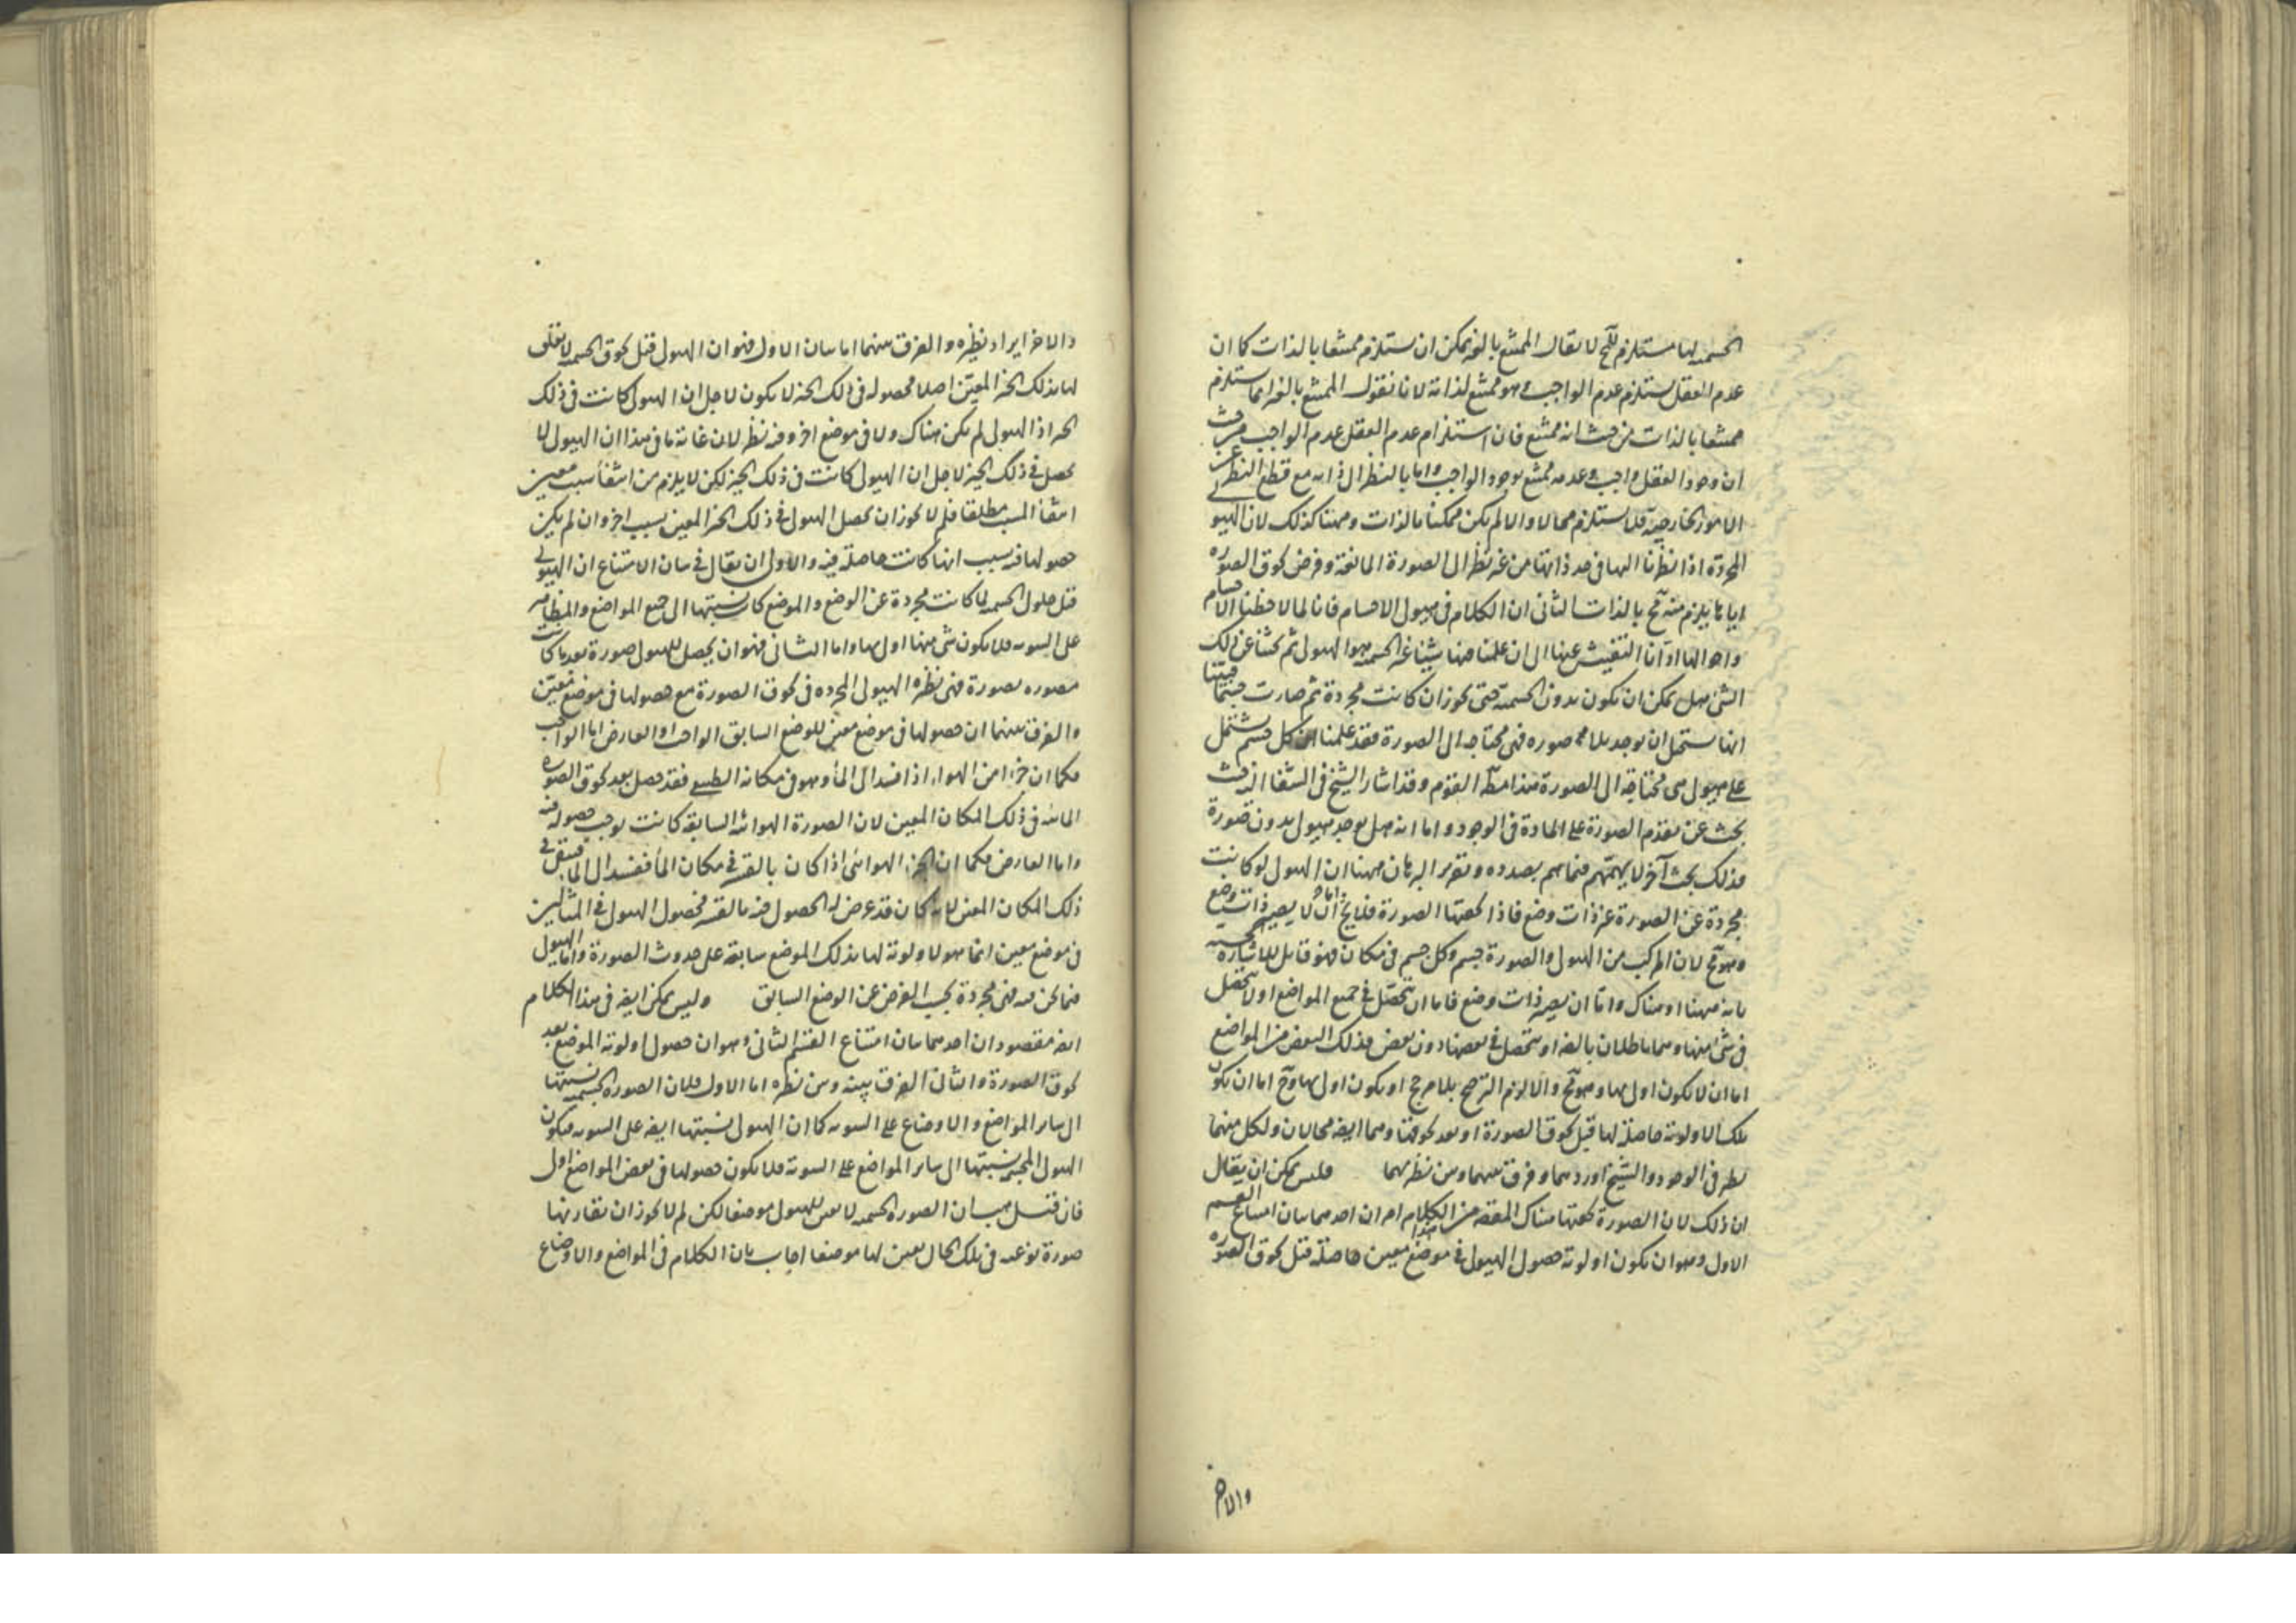 الجسمية لها مستلزم للمح لا يقال الممتنع بالغير يمكن ان يستلزم ممتنعا بالذات كما ان
عدم العقل يستلزم عدم الواجب وهو ممتنع لذاته لانا نقول الممتنع بالغير انما يستلزم
ممتنعا بالذات من حيث انه ممتنع فان استلزام عدم العقل عدم الواجب من حيث
ان وجود العقل واجب وعدمه ممتنع بوجود الواجب واما بالنظر الى ذاته مع قطع النظر عن
الامور الخارجية فلا يستلزم محالا والا لم يكن ممكنا بالذات وههنا كذلك لان الهيولى
المجردة اذا نظرنا اليها في حد ذاتها من غير نظر الى الصورة المانعة وفرض لحوق الصورة
اياها يلزم منه مح بالذات الثانى ان الكلام في هيولى الاجسام فانا لما لاحظنا الاجسام
واحوالها ادانا التفتيش عنها الى ان علمنا فيها شيئا غير الجسمية هو الهيولى ثم بحثنا عن ذلك
الشئ هل يمكن ان يكون بدون الجسمية حتى يجوز ان كانت مجردة ثم صارت جسما فبينا
انها يستحيل ان يوجد بلا صوره فهى محتاجة الى الصورة فقد علمنا ان كل جسم يشتمل
على هيولى هى محتاجة الى الصورة هذا مطلب القوم وقد اشار الشيخ في الشفا حيث
بحث عن تقدم الصورة على المادة في الوجود واما انه هل يوجد هيولى بدون صورة
فذلك بحث آخر لا يهمهم فيما هم بصدده وتقرير البرهان ههنا ان الهيولى لو كانت
مجردة عن الصورة غير ذات وضع فاذا لحقتها الصورة فلا يخ اما ان لا يصير ذات وضع
وهو مح لان المركب من الهيولى والصورة جسم وكل جسم في مكان فهو قابل للاشارة الحسية
بانه ههنا او هناك واما ان يصير ذات وضع فاما ان يتحصل في جميع المواضع او لا يتحصل
في شئ منها وهما باطلان بالضرورة او يتحصل في بعضها دون بعض فذلك البعض من المواضع
اما ان لا يكون اولى بها وهو مح والا لزم الترجيح بلا مرجح او يكون اولى بها وح اما ان يكون
تلك الاولوية حاصلة لها قبل لحوق الصورة او بعد لحوقها وهما ايضا محالان ولكل منهما
نظير في الوجود والشيخ اوردهما وفرق بينهما وبين نظيرهما فليس يمكن ان يقال
ان ذلك لان الصورة لحقتها هناك المقصود من هذا الكلام امران احدهما بيان امتناع القسم
الاول وهو ان يكون اولوية حصول الهيولى في موضع معين حاصلة قبل لحوق الصورة
والاخر
والاخر ايراد نظيره والفرق بينهما اما بيان الاول فهو ان الهيولى قبل لحوق الجسمية لا تعلق
لها بذلك الحيز المعين اصلا فحصوله في ذلك الحيز لا يكون لاجل ان الهيولى كانت في ذلك
الحيز اذ الهيولى لم يكن هناك ولا في موضع اخر وفيه نظر لان غاية ما في هذا ان الهيولى لا
يحصل في ذلك الحيز لاجل ان الهيولى كانت في ذلك الحيز لكن لا يلزم من انتفاء سبب معين
انتفاء السبب مطلقا فلم لا يجوز ان يحصل الهيولى في ذلك الحيز المعين بسبب اخر وان لم يكن
حصولها فيه بسبب انها كانت حاصلة فيه والاولى ان يقال في بيان الامتناع ان الهيولى
قبل حلول الجسمية لما كانت مجردة عن الوضع والموضع كان نسبتها الى جميع المواضع
على السوية فلا يكون شئ منها اولى بها واما الثانى فهو ان يحصل للهيولى صورة بعد ما كانت
مصوره بصورة فهى نظيره الهيولى المجرده في لحوق الصورة مع حصولها في موضع معين
والفرق بينهما ان حصولها في موضع معين للوضع السابق الواجب او العارض اما الواجب
فكما ان جزءا من الهواء اذا فسد الى الماء وهو في مكانه الطبيعى فقد حصل بعد لحوق الصورة
المائية في ذلك المكان المعين لان الصورة الهوائية السابقة كانت توجب حصوله فيه
واما العارض فكما ان الجزء الهوائى اذا كان بالقسر في مكان الماء ففسد الى الماء فيبقى في
ذلك المكان المعين لانه كان قد عرض له الحصول فيه بالقسر فحصول الهيولى في المثالين
في موضع معين انما هو لاولوية لها بذلك الموضع سابقة على حدوث الصورة واما الهيولى
فيما نحن فيه فهى مجردة بحسب الفرض عن الوضع السابق وليس يمكن ايضا في هذا الكلام
ايضا مقصودان احدهما بيان امتناع القسم الثانى وهو ان حصول اولوية الموضع بعد
لحوق الصورة والثانى الفرق بينه وبين نظيره اما الاول فلان الصورة الجسمية نسبتها
الى ساير المواضع والاوضاع على السوية كما ان الهيولى نسبتها ايضا على السوية فيكون
الهيولى نسبتها الى ساير المواضع على السوية فلا يكون حصولها في بعض المواضع اولى
فان قيل هب ان الصورة الجسمية لا تعين للهيولى موضعا لكن لم لا يجوز ان تقارنها
صورة نوعية في تلك الحال تعين لها موضعا اجاب بان الكلام في المواضع والاوضاع